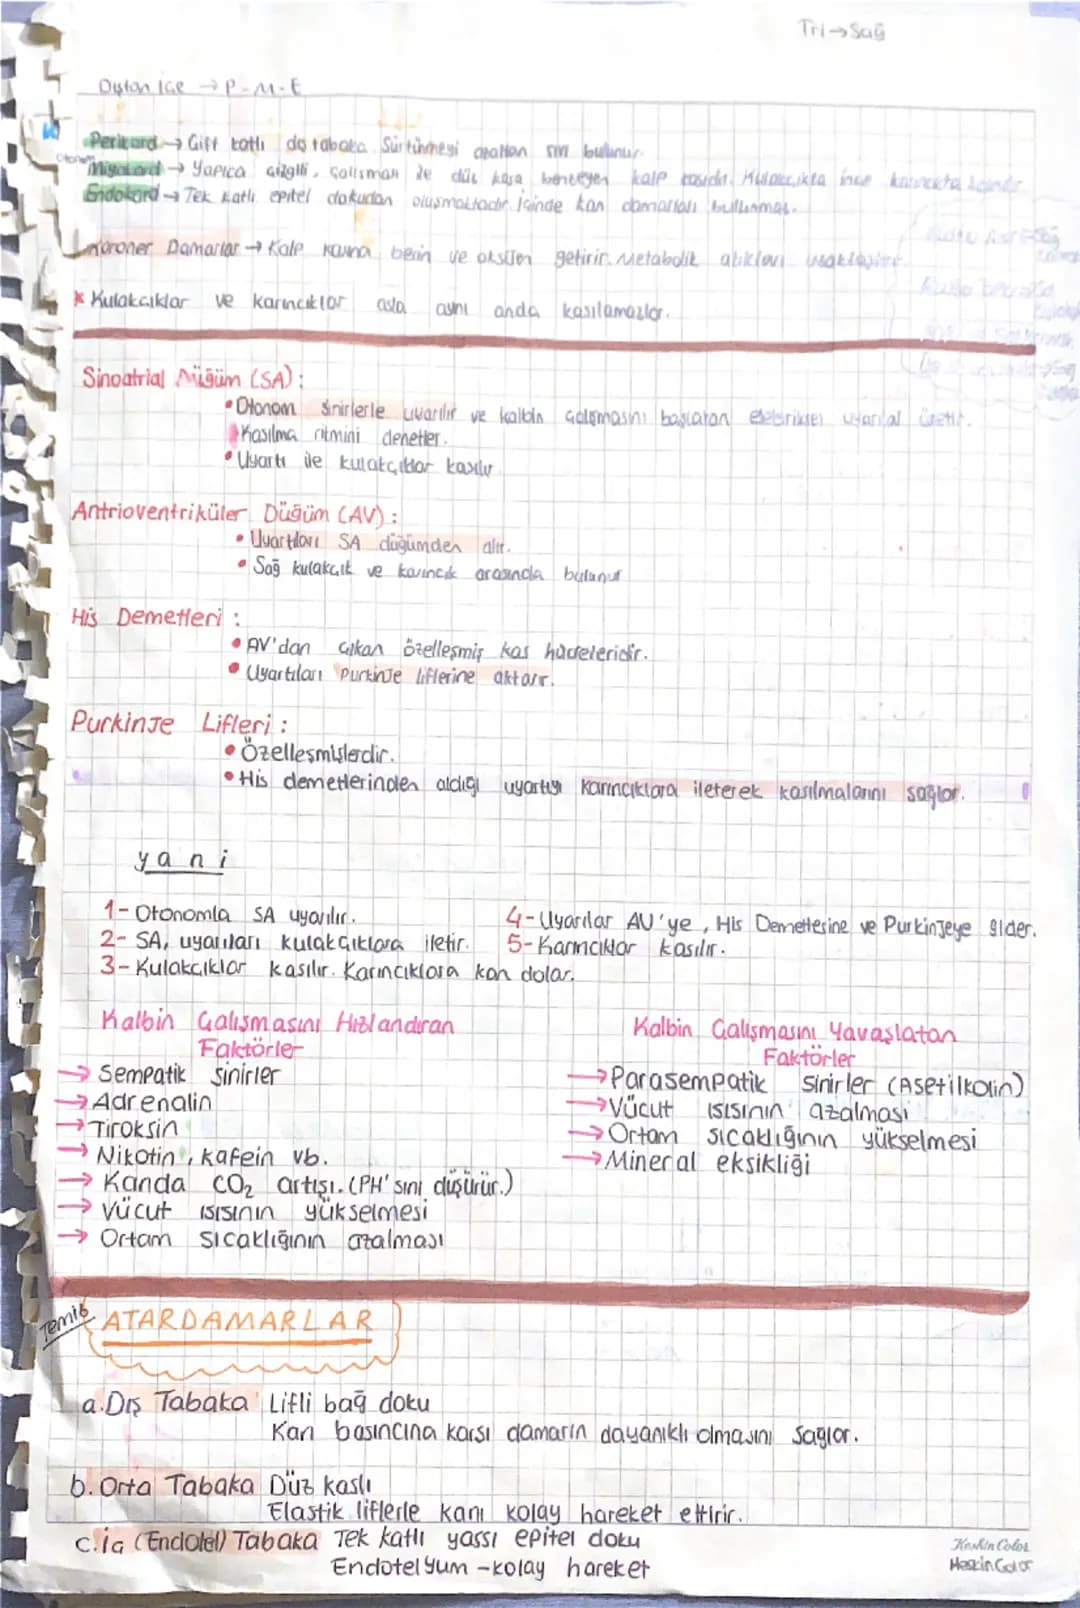 Tri→Sağ
Dıştan içe → P-M-E
Perikard → Çift katlı dış tabaka. Sürtünmeyi azaltan sıvı bulunur.
otonom
Miyokard → Yapıca çizgili, çalışması ile düz kasa benzeyen kalp kasıdır. Kulakçıkta ince karıncıkta kalındır
Endokard → Tek katlı epitel dokudan oluşmaktadır. İçinde kan damarları bulunmaz.
Koroner Damarlar → Kalp kasına besin ve oksijen getirir. Metabolik atıkları uzaklaştırır
* Kulakçıklar ve karıncıklar asla aynı anda kasılamazlar.
Sinoatrial Düğüm (SA) :
• Otonom sinirlerle uyarılır ve kalbin çalışmasını başlatan elektriksel uyarılar üretir.
Kasılma ritmini denetler.
• Uyartı ile kulakçıklar kasılır
Antrioventriküler Düğüm (AV) :
• Uyartıları SA düğümden alır.
• Sağ kulakçık ve karıncık arasında bulunur
His Demetleri :
• AV'dan çıkan özelleşmiş kas hücreleridir.
• Uyartıları Purkinje liflerine aktarır.
Purkinje Lifleri :
• Özelleşmişlerdir.
• His demetlerinden aldığı uyartıyı karıncıklara ileterek kasılmalarını sağlar.
yani
1- Otonomla SA uyarılır.
2- SA, uyarıları kulakçıklara iletir.
3- Kulakçıklar kasılır. Karıncıklara kan dolar.
4- Uyarılar AV'ye, His Demetlerine ve Purkinjeye gider.
5- Karıncıklar kasılır.
Kalbin Çalışmasını Hızlandıran
Faktörler
→ Sempatik Sinirler
→ Adrenalin
→ Tiroksin
→ Nikotin, kafein vb.
→ Kanda CO₂ artışı. (PH'sını düşürür.)
→ Vücut ısısının yükselmesi
→ Ortam sıcaklığının azalması
Kalbin Çalışmasını Yavaşlatan
Faktörler
→ Parasempatik Sinirler (Asetilkolin)
→ Vücut ısısının azalması
→ Ortam sıcaklığının yükselmesi
→ Mineral eksikliği
Temiz
ATARDAMARLAR
a. Dış Tabaka Lifli bağ doku
Kan basıncına karşı damarın dayanıklı olmasını sağlar.
b. Orta Tabaka Düz kaslı
Elastik liflerle kanı kolay hareket ettirir.
c. iç (Endotel) Tabaka Tek katlı yassı epitel doku
Endotelyum - kolay hareket
Keskin Color
Keskin Color